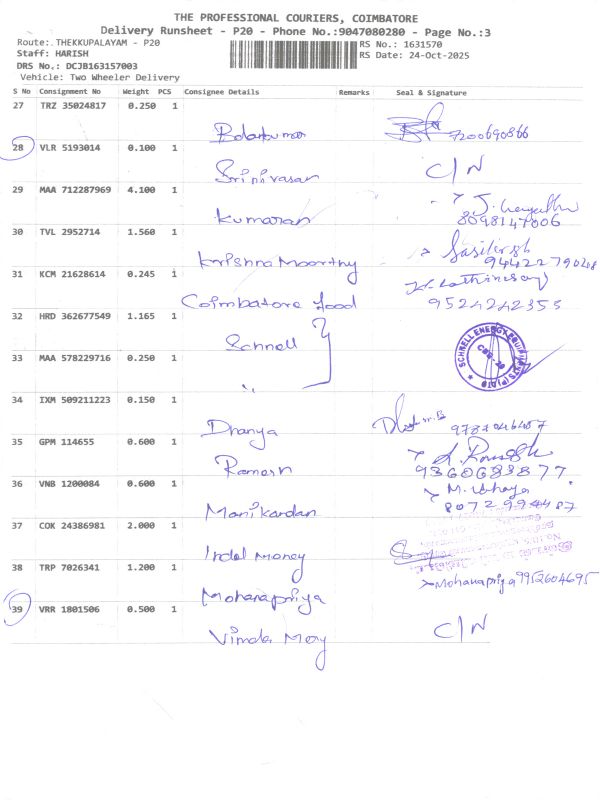 THE PROFESSIONAL COURIERS, COIMBATORE
Delivery Runsheet - P20 - Phone No.:9047080280 - Page No.:3
Route: THEKKUPALAYAM - P20 RS No.: 1631570
Staff: HARISH RS Date: 24-Oct-2025
DRS No.: DCJB163157003
Vehicle: Two Wheeler Delivery
S No Consignment No Weight PCS Consignee Details Remarks Seal & Signature
27 TRZ 35024817 0.250 1
Balakumar 7200690866
28 VLR 5193014 0.100 1
Srinivasan C/N
29 MAA 712287969 4.100 1
Kumaran 8098147006
30 TVL 2952714 1.560 1
Krishna Moorthy
31 KCM 21628614 0.245 1
Coimbatore food 9524242353
32 HRD 362677549 1.165 1
Schnell SCHNELL ENERGY EQUIPMENTS (P) LTD
33 MAA 578229716 0.250 1
"
34 IXM 509211223 0.150 1
Dhanya
35 GPM 114655 0.600 1
Ramesh 9360683877.
36 VNB 1200084 0.600 1
Manikandan 8072994487
37 COK 24386981 2.000 1
Indel Money
38 TRP 7026341 1.200 1
Mohanapriya Mohanapriya 9952604695
39 VRR 1801506 0.500 1
C/N